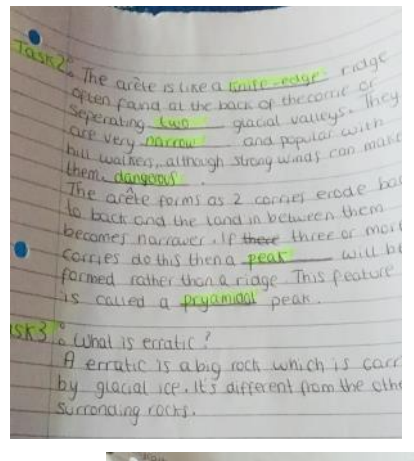 Task2: The arête is like a knife-edge ridge
often found at the back of the corrie or
seperating two glacial valleys. They
are very narrow and popular with
hill walkers, although strong winds can make
them dangerous.
The arête forms as 2 corries erode bac
to back and the land in between them
becomes narrower. If there three or mor
corries do this then a peak will be
formed rather than a ridge. This feature
is called a pryamidal peak.
sk3: What is erratic?
A erratic is a big rock which is carr
by glacial ice. It's different from the othe
surronding rocks.